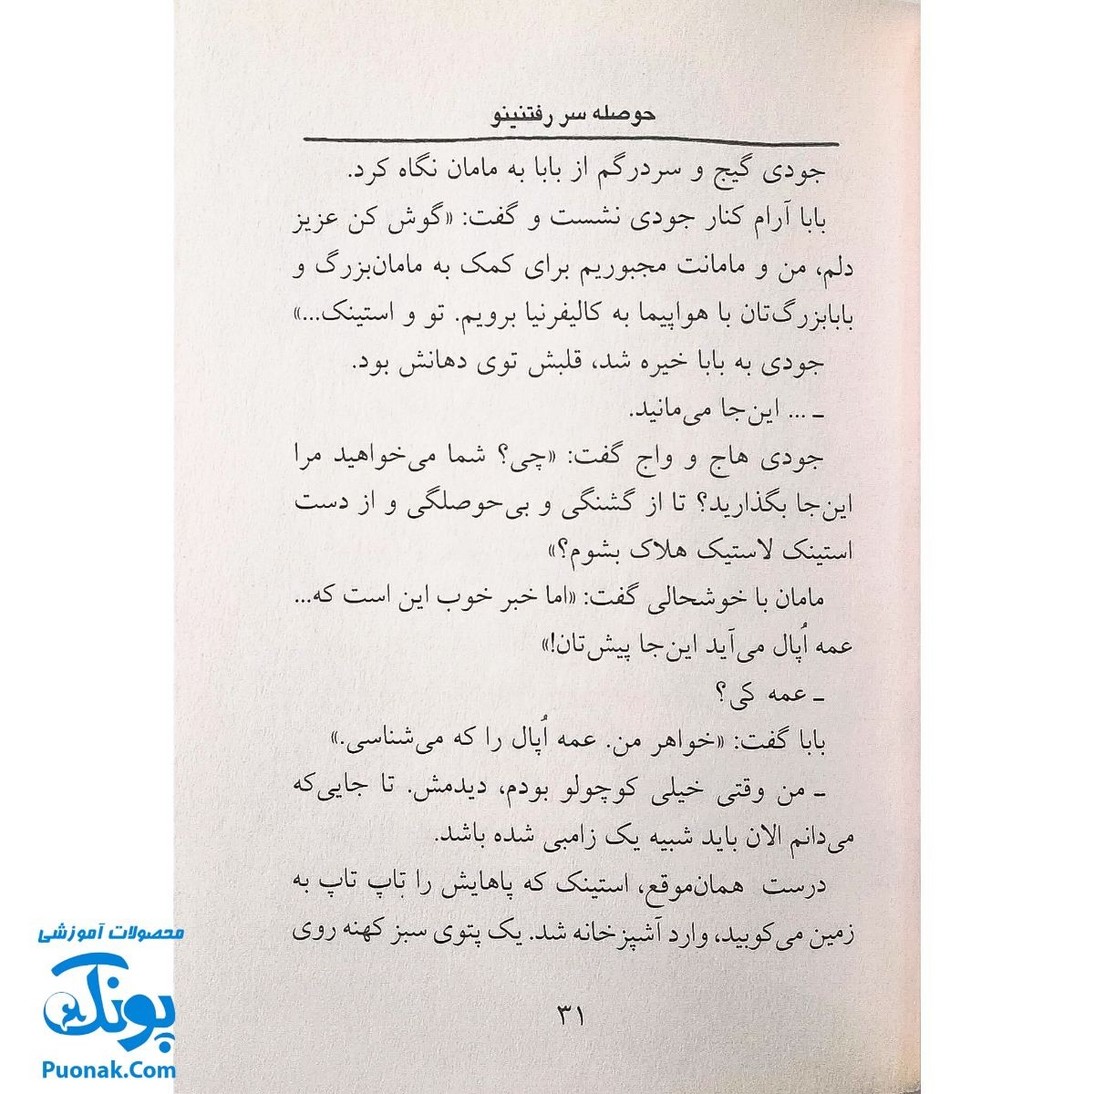 حوصله سر رفتنینو
جودی گیج و سردرگم از بابا به مامان نگاه کرد.
بابا آرام کنار جودی نشست و گفت: «گوش کن عزیز
دلم، من و مامانت مجبوریم برای کمک به مامان‌بزرگ و
بابابزرگ‌تان با هواپیما به کالیفرنیا برویم. تو و استینک...»
جودی به بابا خیره شد، قلبش توی دهانش بود.
ـ ... این‌جا می‌مانید.
جودی هاج و واج گفت: «چی؟ شما می‌خواهید مرا
این‌جا بگذارید؟ تا از گشنگی و بی‌حوصلگی و از دست
استینک لاستیک هلاک بشوم؟»
مامان با خوشحالی گفت: «اما خبر خوب این است که...
عمه اُپال می‌آید این‌جا پیش‌تان!»
ـ عمه کی؟
بابا گفت: «خواهر من. عمه اُپال را که می‌شناسی.»
ـ من وقتی خیلی کوچولو بودم، دیدمش. تا جایی‌که
می‌دانم الان باید شبیه یک زامبی شده باشد.
درست همان‌موقع، استینک که پاهایش را تاپ تاپ به
زمین می‌کوبید، وارد آشپزخانه شد. یک پتوی سبز کهنه روی
۳۱
محصولات آموزشی
پونک
Puonak.Com